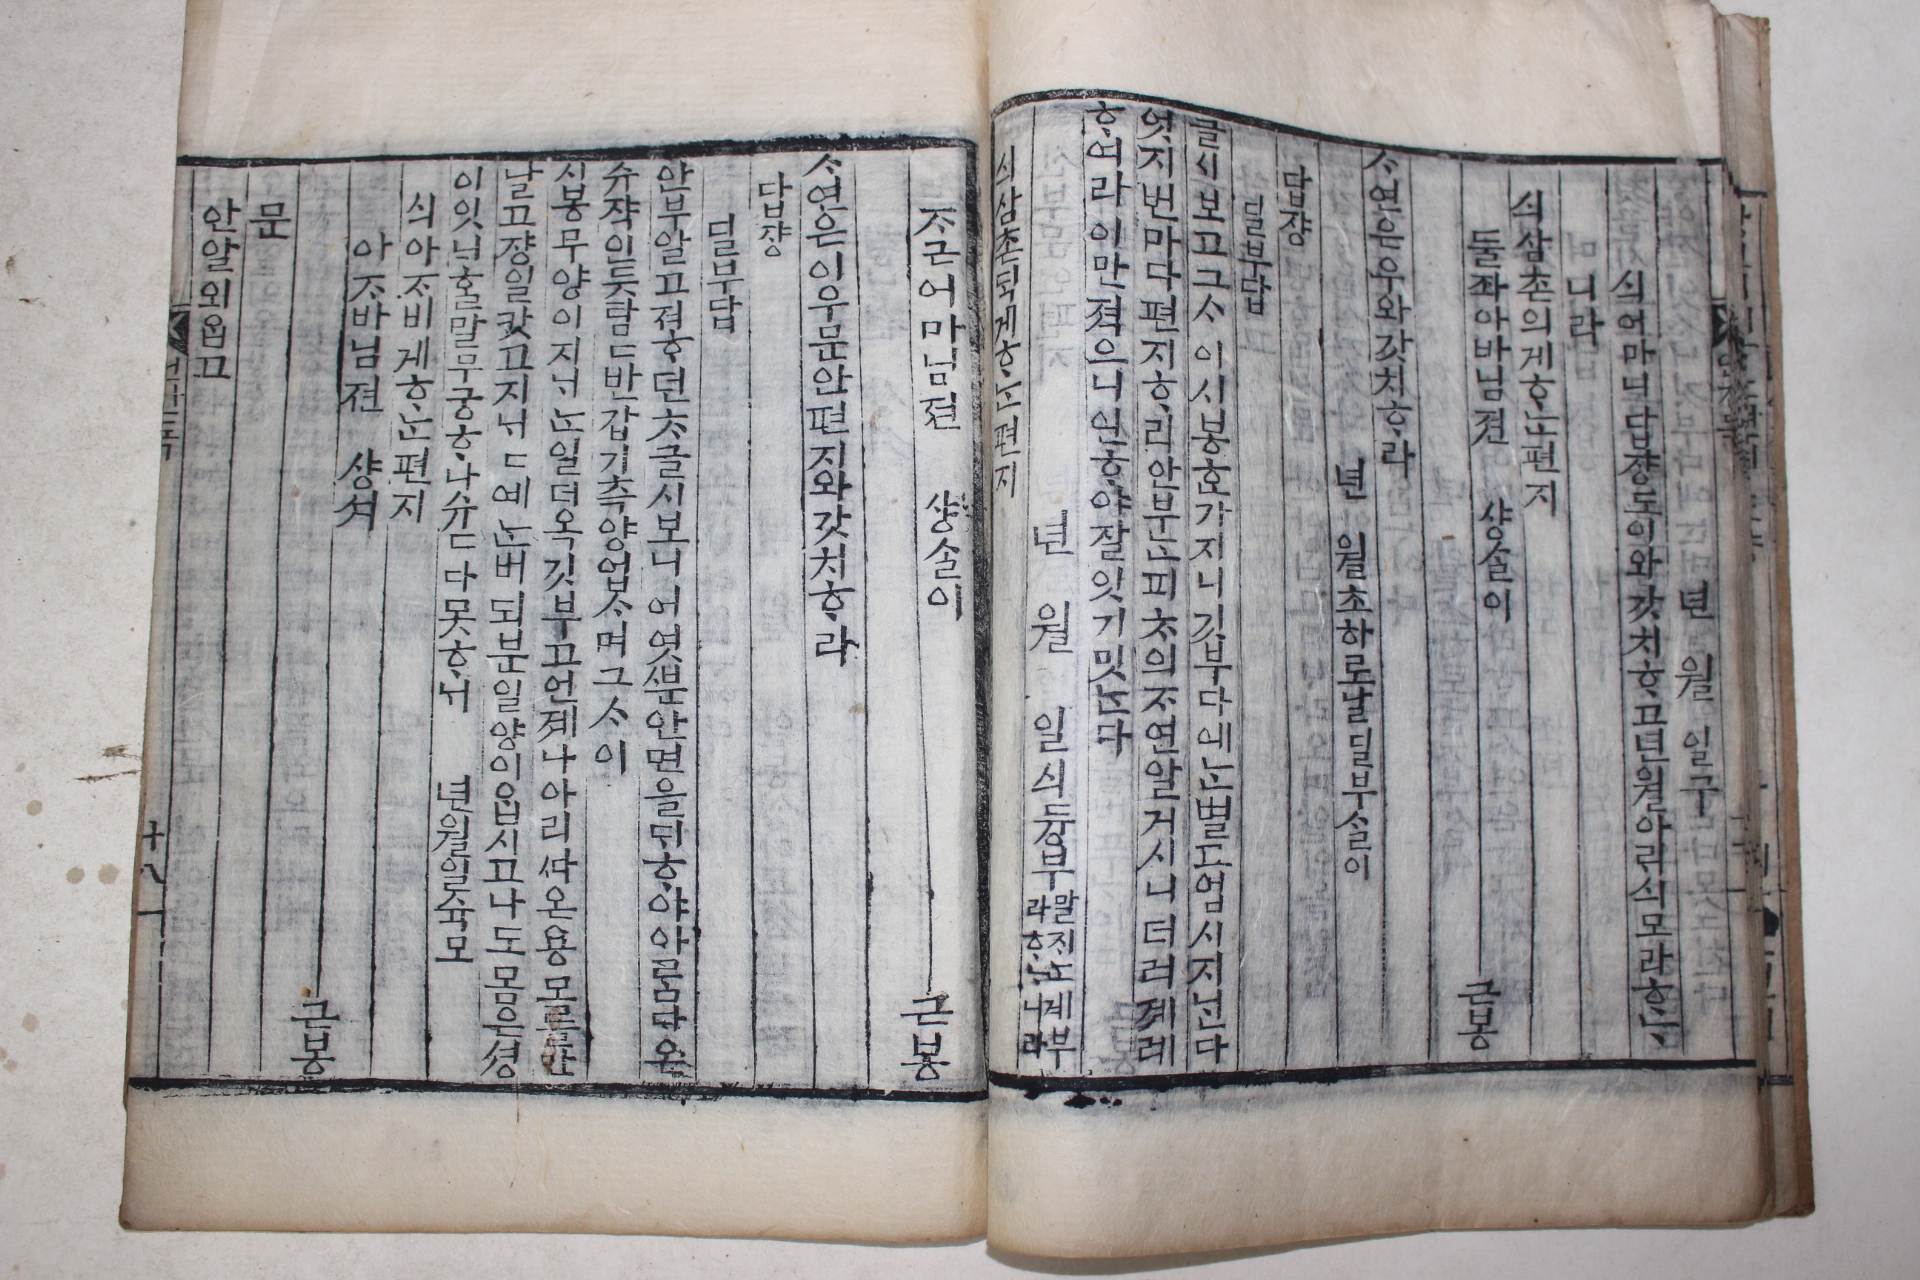 년 월 일구
싀어마님답쟝도이와갓치ᄒᆞ고년월아ᄅᆡ싀모라ᄒᆞᄂᆞ
니라
싀삼촌의게ᄒᆞᄂᆞᆫ편지
둘ᄌᆡ아바님젼 샹ᄉᆞᆯ이
근봉
ᄉᆞ연은우와갓치ᄒᆞ라
년 월초하로날딜부ᄉᆞᆯ이
답쟝
딜부답
글시보고그ᄉᆞ이시봉ᄒᆞ가지니깃부다예ᄂᆞᆫ별노업시지ᄂᆡᆫ다
엇지번마다편지ᄒᆞ리안부ᄂᆞᆫ피ᄎᆞ의ᄌᆞ연알거시니더러계러
ᄒᆞ여라이만젹으니인ᄒᆞ야잘잇기밋ᄂᆞᆫ다
년 월 일싀듕부 말ᄌᆡᄂᆞᆫ계부라ᄒᆞᄂᆞ니라
싀삼촌ᄃᆡᆨ게ᄒᆞᄂᆞᆫ편지
ᄌᆞ근어마님젼 샹ᄉᆞᆯ이
근봉
ᄉᆞ연은인우문안편지와갓치ᄒᆞ라
답쟝
딜부답
안부알고져ᄒᆞ던ᄎᆞ글시보니어엿ᄲᅮᆫ안면을ᄃᆡᄒᆞ야아ᄅᆞᆷ다온
슈쟉인듯탐ᄐᆞᆷ반갑기측양업ᄉᆞ며그ᄉᆞ이
시봉무양이지ᄂᆡᄂᆞᆫ일더옥깃부고언졔나아리ᄯᅡ온용모ᄅᆞᆯᄃᆡ
날고쟝일캇고지ᄂᆡᄂᆡ예ᄂᆞᆫ버되분일양이웁시고나도몸은셩
이잇ᄂᆡ홀말무궁ᄒᆞ나슈ᄃᆞ다못ᄒᆞᄂᆡ 년월일숙모
싀아ᄌᆞ비게ᄒᆞᄂᆞᆫ편지
아ᄌᆞ바님젼 샹셔
근봉
문
안알외옵고
언간독
十八